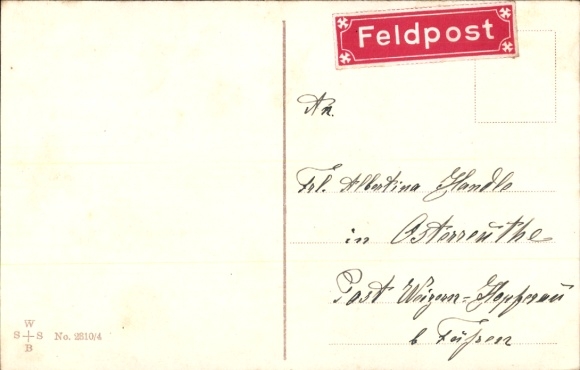 Feldpost
An.
Frl. Albertina Handle
in Osterreuthe
Post Weizern-Hopferau
b Füßen
W
S S
B
No. 2810/4